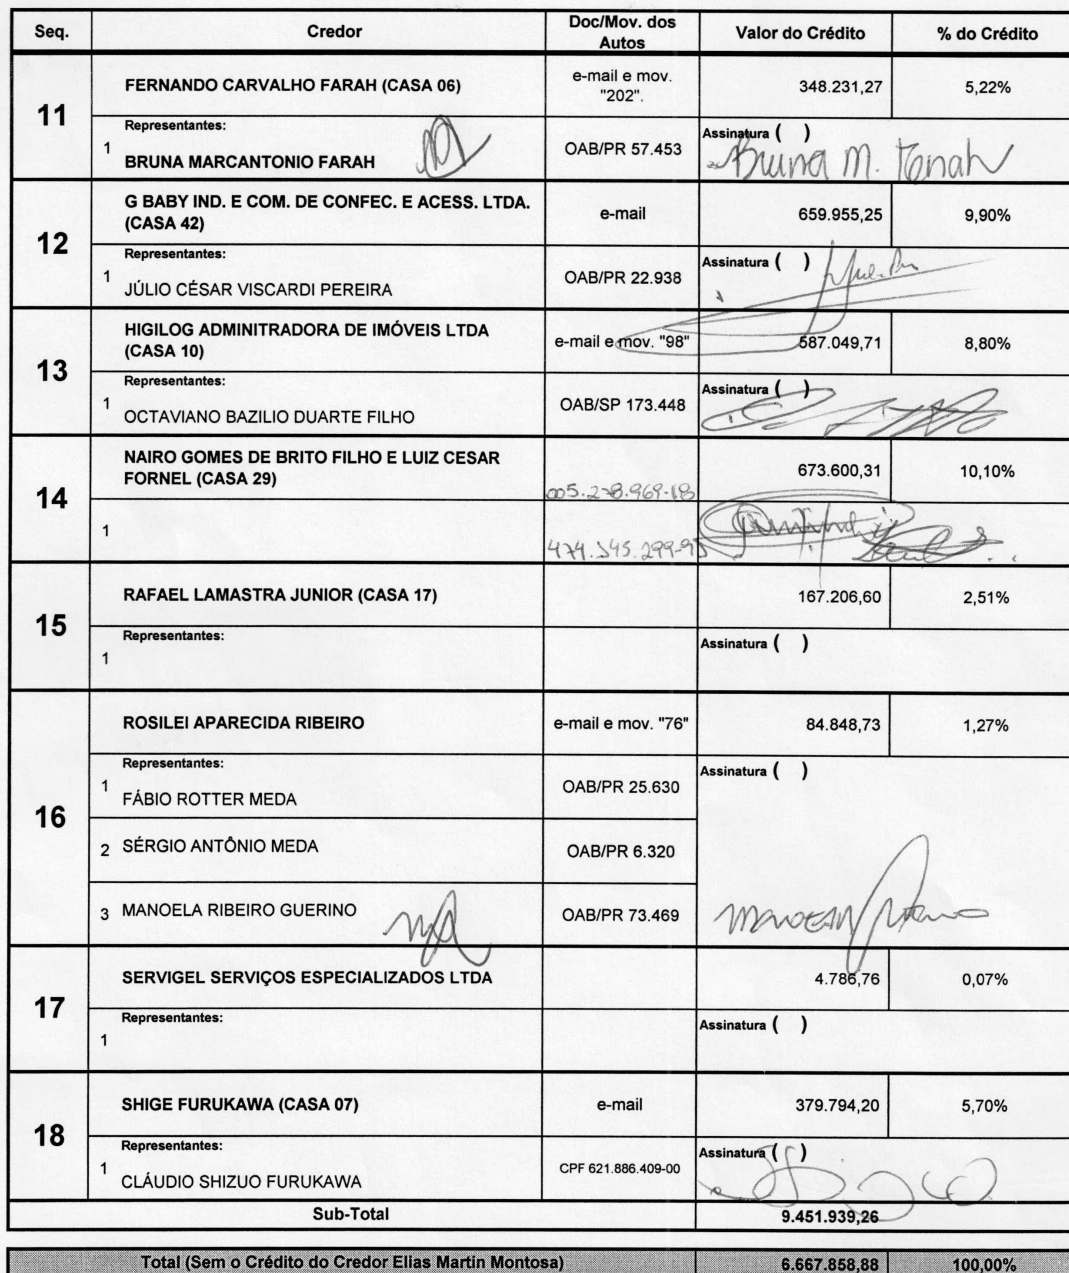 Seq. Credor Doc/Mov. dos Autos Valor do Crédito % do Crédito
11
FERNANDO CARVALHO FARAH (CASA 06) e-mail e mov. "202". 348.231,27 5,22%
Representantes: Assinatura ( )
1 BRUNA MARCANTONIO FARAH OAB/PR 57.453 Bruna M. Farah
12
G BABY IND. E COM. DE CONFEC. E ACESS. LTDA. (CASA 42) e-mail 659.955,25 9,90%
Representantes: Assinatura ( )
1 JÚLIO CÉSAR VISCARDI PEREIRA OAB/PR 22.938
13
HIGILOG ADMINITRADORA DE IMÓVEIS LTDA (CASA 10) e-mail e mov. "98" 587.049,71 8,80%
Representantes: Assinatura ( )
1 OCTAVIANO BAZILIO DUARTE FILHO OAB/SP 173.448
14
NAIRO GOMES DE BRITO FILHO E LUIZ CESAR FORNEL (CASA 29) 673.600,31 10,10%
1
15
RAFAEL LAMASTRA JUNIOR (CASA 17) 167.206,60 2,51%
Representantes: Assinatura ( )
1
16
ROSILEI APARECIDA RIBEIRO e-mail e mov. "76" 84.848,73 1,27%
Representantes: Assinatura ( )
1 FÁBIO ROTTER MEDA OAB/PR 25.630
2 SÉRGIO ANTÔNIO MEDA OAB/PR 6.320
3 MANOELA RIBEIRO GUERINO OAB/PR 73.469
17
SERVIGEL SERVIÇOS ESPECIALIZADOS LTDA 4.786,76 0,07%
Representantes: Assinatura ( )
1
18
SHIGE FURUKAWA (CASA 07) e-mail 379.794,20 5,70%
Representantes: Assinatura ( )
1 CLÁUDIO SHIZUO FURUKAWA CPF 621.886.409-00
Sub-Total 9.451.939,26
Total (Sem o Crédito do Credor Elias Martin Montosa) 6.667.858,88 100,00%